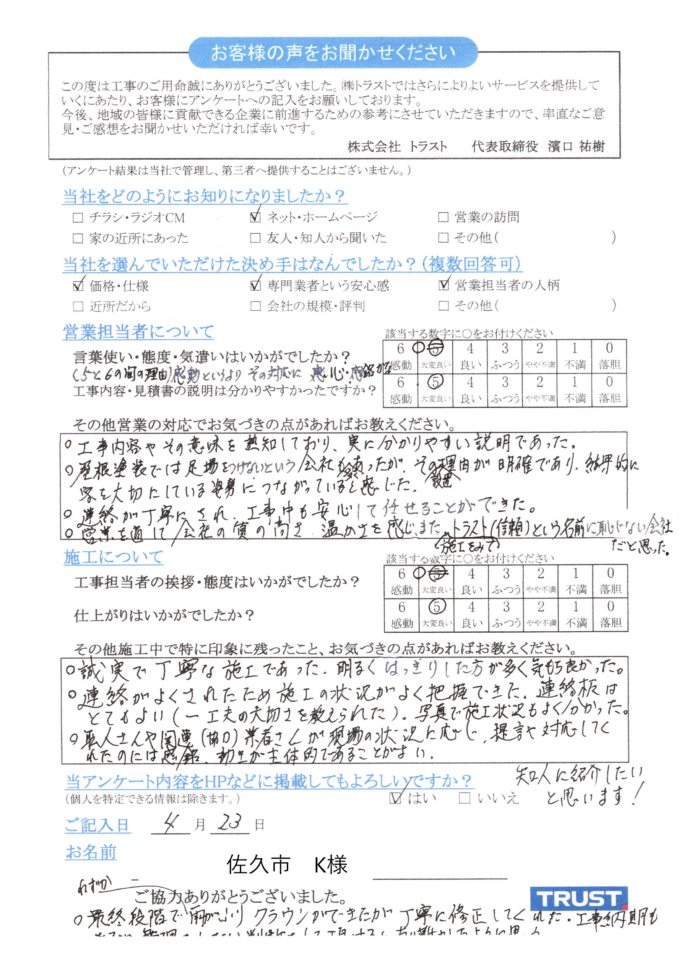 お客様の声をお聞かせください
この度は工事のご用命誠にありがとうございました。㈱トラストではさらによりよいサービスを提供して
いくにあたり、お客様にアンケートへの記入をお願いしております。
今後、地域の皆様に貢献できる企業に前進するための参考にさせていただきますので、率直なご意
見・ご感想をお聞かせいただければ幸いです。
株式会社 トラスト 代表取締役 濱口 祐樹
(アンケート結果は当社で管理し、第三者へ提供することはございません。)
当社をどのようにお知りになりましたか？
□ チラシ・ラジオCM ☑ ネット・ホームページ □ 営業の訪問
□ 家の近所にあった □ 友人・知人から聞いた □ その他( )
当社を選んでいただけた決め手はなんでしたか？(複数回答可)
☑ 価格・仕様 ☑ 専門業者という安心感 ☑ 営業担当者の人柄
□ 近所だから □ 会社の規模・評判 □ その他( )
営業担当者について
該当する数字に○をお付けください
言葉使い・態度・気遣いはいかがでしたか？
6 5 4 3 2 1 0
感動 大変良い 良い ふつう やや不満 不満 落胆
(5と6の間の理由)感動というより その対応に 感心・感銘かな
工事内容・見積書の説明は分かりやすかったですか？
6 ⑤ 4 3 2 1 0
感動 大変良い 良い ふつう やや不満 不満 落胆
その他営業の対応でお気づきの点があればお教えください。
○工事内容やその意味を熟知しており、実に分かりやすい説明であった。
○屋根塗装では足場をつけないという会社もあったが、その理由が明確であり、結果的に
客を大切にしている姿勢につながっていると感じた。
○連絡が丁寧にされ、工事中も安心して任せることができた。
○営業を通じ会社の質の高さ、温かさを感じ、また、トラスト(信頼)という名前に恥じない会社
(施工をみて) だと思った。
施工について
該当する数字に○をお付けください
工事担当者の挨拶・態度はいかがでしたか？
6 5 4 3 2 1 0
感動 大変良い 良い ふつう やや不満 不満 落胆
仕上がりはいかがでしたか？
6 ⑤ 4 3 2 1 0
感動 大変良い 良い ふつう やや不満 不満 落胆
その他施工中で特に印象に残ったこと、お気づきの点があればお教えください。
○誠実で丁寧な施工であった。明るくはっきりした方が多く気持ち良かった。
○連絡がよくされたため施工の状況がよく把握できた。連絡板は
とてもよい(一工夫の大切さを教えられた)。写真で施工状況もよく分かった。
○職人さんや関連(協力)業者さんが現場の状況に応じ、提言や対応してく
れたのには感銘。動きが主体的であることがよい。
当アンケート内容をHPなどに掲載してもよろしいですか？
知人に紹介したい
(個人を特定できる情報は除きます。) ☑ はい □ いいえ
と思います！
ご記入日 4 月 23 日
お名前
佐久市 K様
わずか
ご協力ありがとうございました。
TRUST
○最終段階で クラウンができたが丁寧に修正してくれた。工事納期も